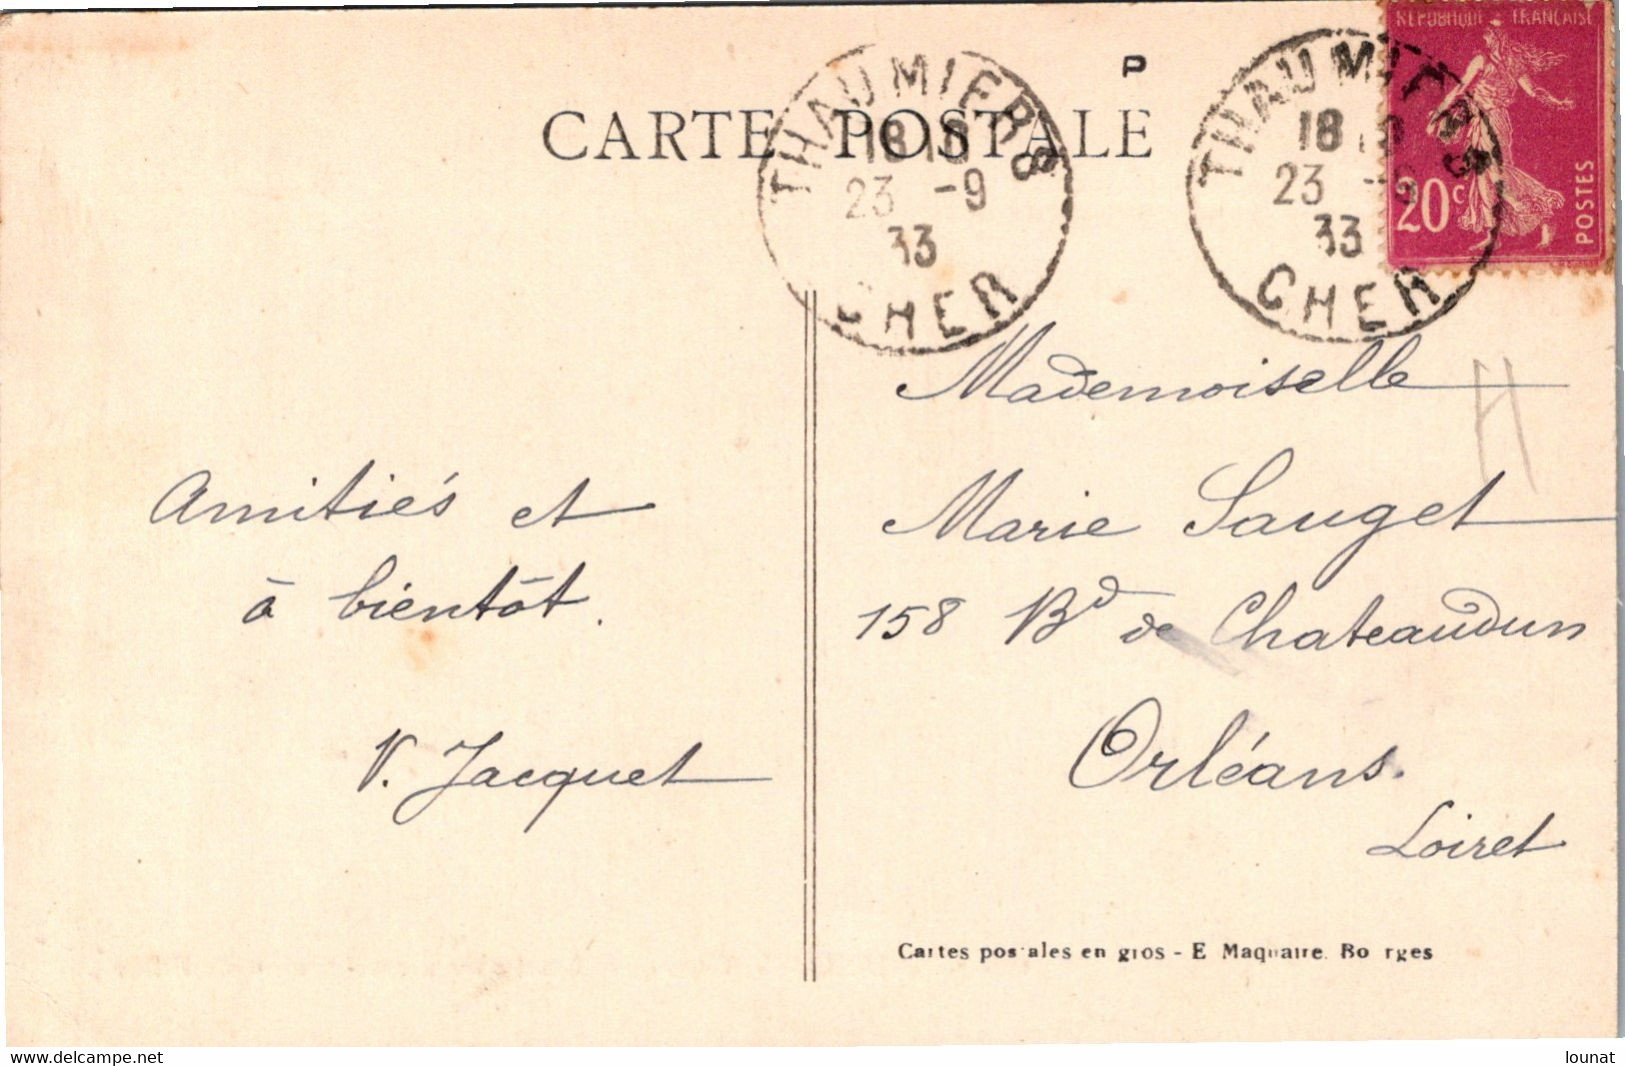 P
CARTE POSTALE
THAUMIERS
18
23 -9
33
CHER
THAUMIERS
18
23 -
33
CHER
REPUBLIQUE FRANÇAISE
20c
POSTES
Amitiés et
à bientôt.
V. Jacquet
Mademoiselle
Marie Sauget
158 Bd de Chateaudun
Orléans.
Loiret
H
Cartes postales en gros - E Maquaire. Bourges
www.delcampe.net
lounat